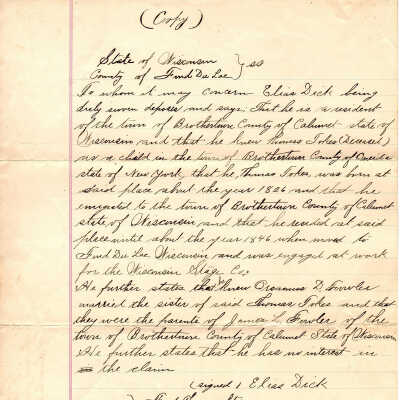 (Copy)
State of Wisconsin } ss
County of Fond Du Lac
To whom it may concern Elias Dick being
duly sworn deposes and says. That he is a resident
of the town of Brothertown County of Calumet state of
Wisconsin and that he knew Thomas Isles (Deceased)
as a child in the town of Brothertown County of Oneida
state of New York, that he, Thomas Isles was born at
said place about the year 1826 and that he
emigrated to the town of Brothertown County of Calumet
state of Wisconsin and that he resided at said
place until about the year 1846 when moved to
Fond Du Lac Wisconsin and was engaged at work
for the Wisconsin Stage Co.
He further states that knew Orsamus D. Fowler
married the sister of said Thomas Isles and that
they were the parents of James L. Fowler of the
town of Brothertown County of Calumet State of Wisconsin
He further states that he has no interest in
the claim
(signed) Elias Dick